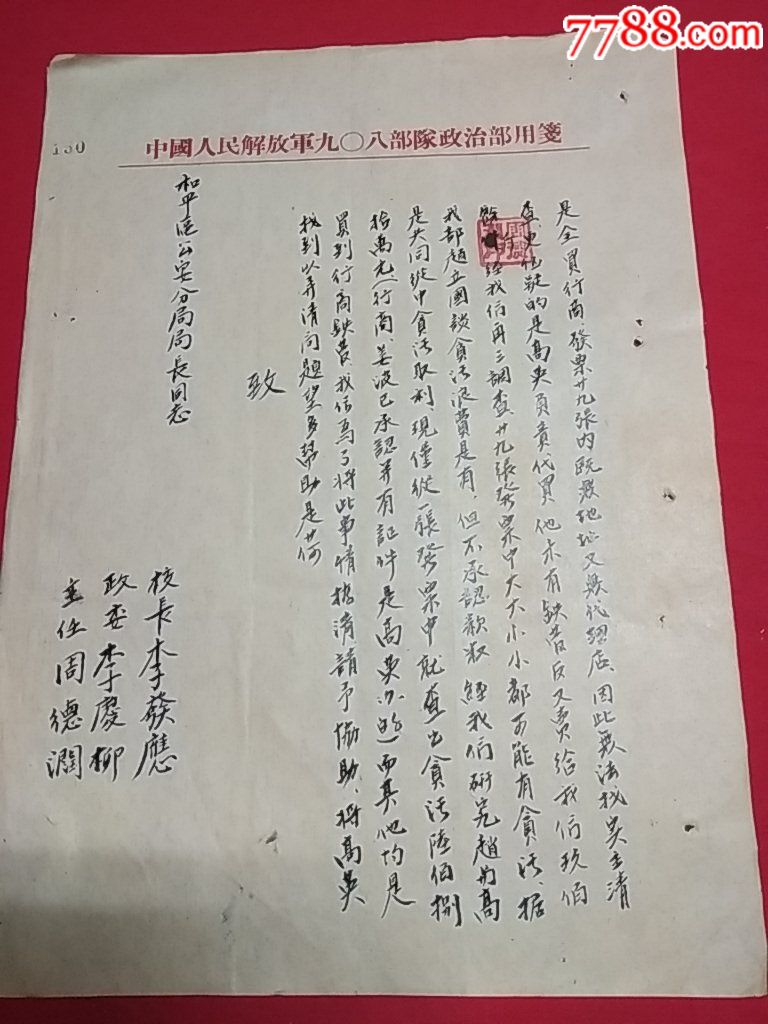 7788.com
130
中國人民解放軍九〇八部隊政治部用箋
是全買行商、發票廿九張內既無地址又無代理店、因此無法找吳主清
查、更怀疑的是高英負責代買他未有缺貨反又賣給我們玖佰
餘 經我们再三調查廿九張發票中大大小小都可能有貪污、据
我部趙立國談貪污浪費是有、但不承認款数、經我们研究趙与高
是共同從中貪污取利、現僅從一張發票中就查出貪污陸佰捌
拾萬元、（行商、姜波已承認并有証件是高英办的）而其他均是
買到行商缺貨、我们為了將此事情搞清、請予協助、將高英
找到以弄清问題望多幫助是荷
致
和平區公安分局局長同志
校長李發應
政委李慶柳
主任周德潤